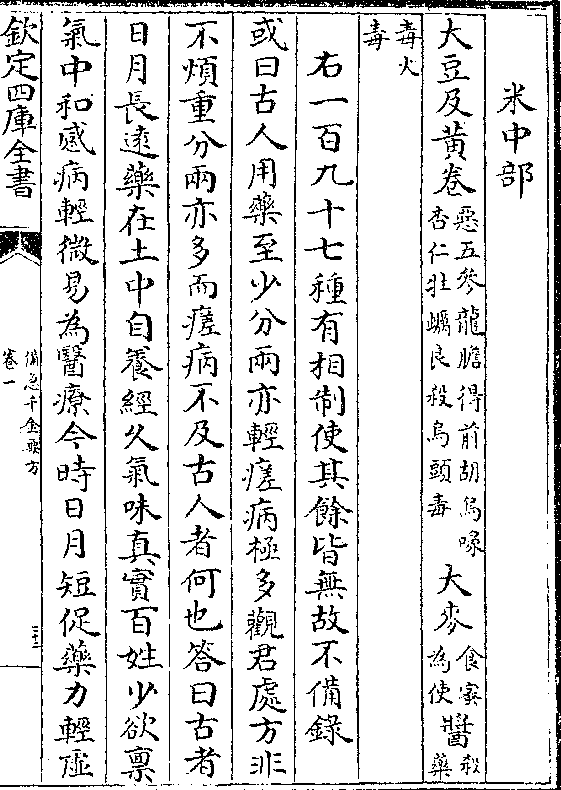 米中部
大豆及黃卷惡五參龍膽得前胡烏喙杏仁牡蠣良殺烏頭毒 大麥食蜜為使 醬殺藥
毒火毒
右一百九十七種有相制使其餘皆無故不備錄
或曰古人用藥至少分兩亦輕瘥病極多觀君處方非
不煩重分兩亦多而瘥病不及古人者何也答曰古者
日月長遠藥在土中自養經久氣味真實百姓少欲稟
氣中和感病輕微易為醫療今時日月短促藥力輕虛
欽定四庫全書
備急千金要方
卷一